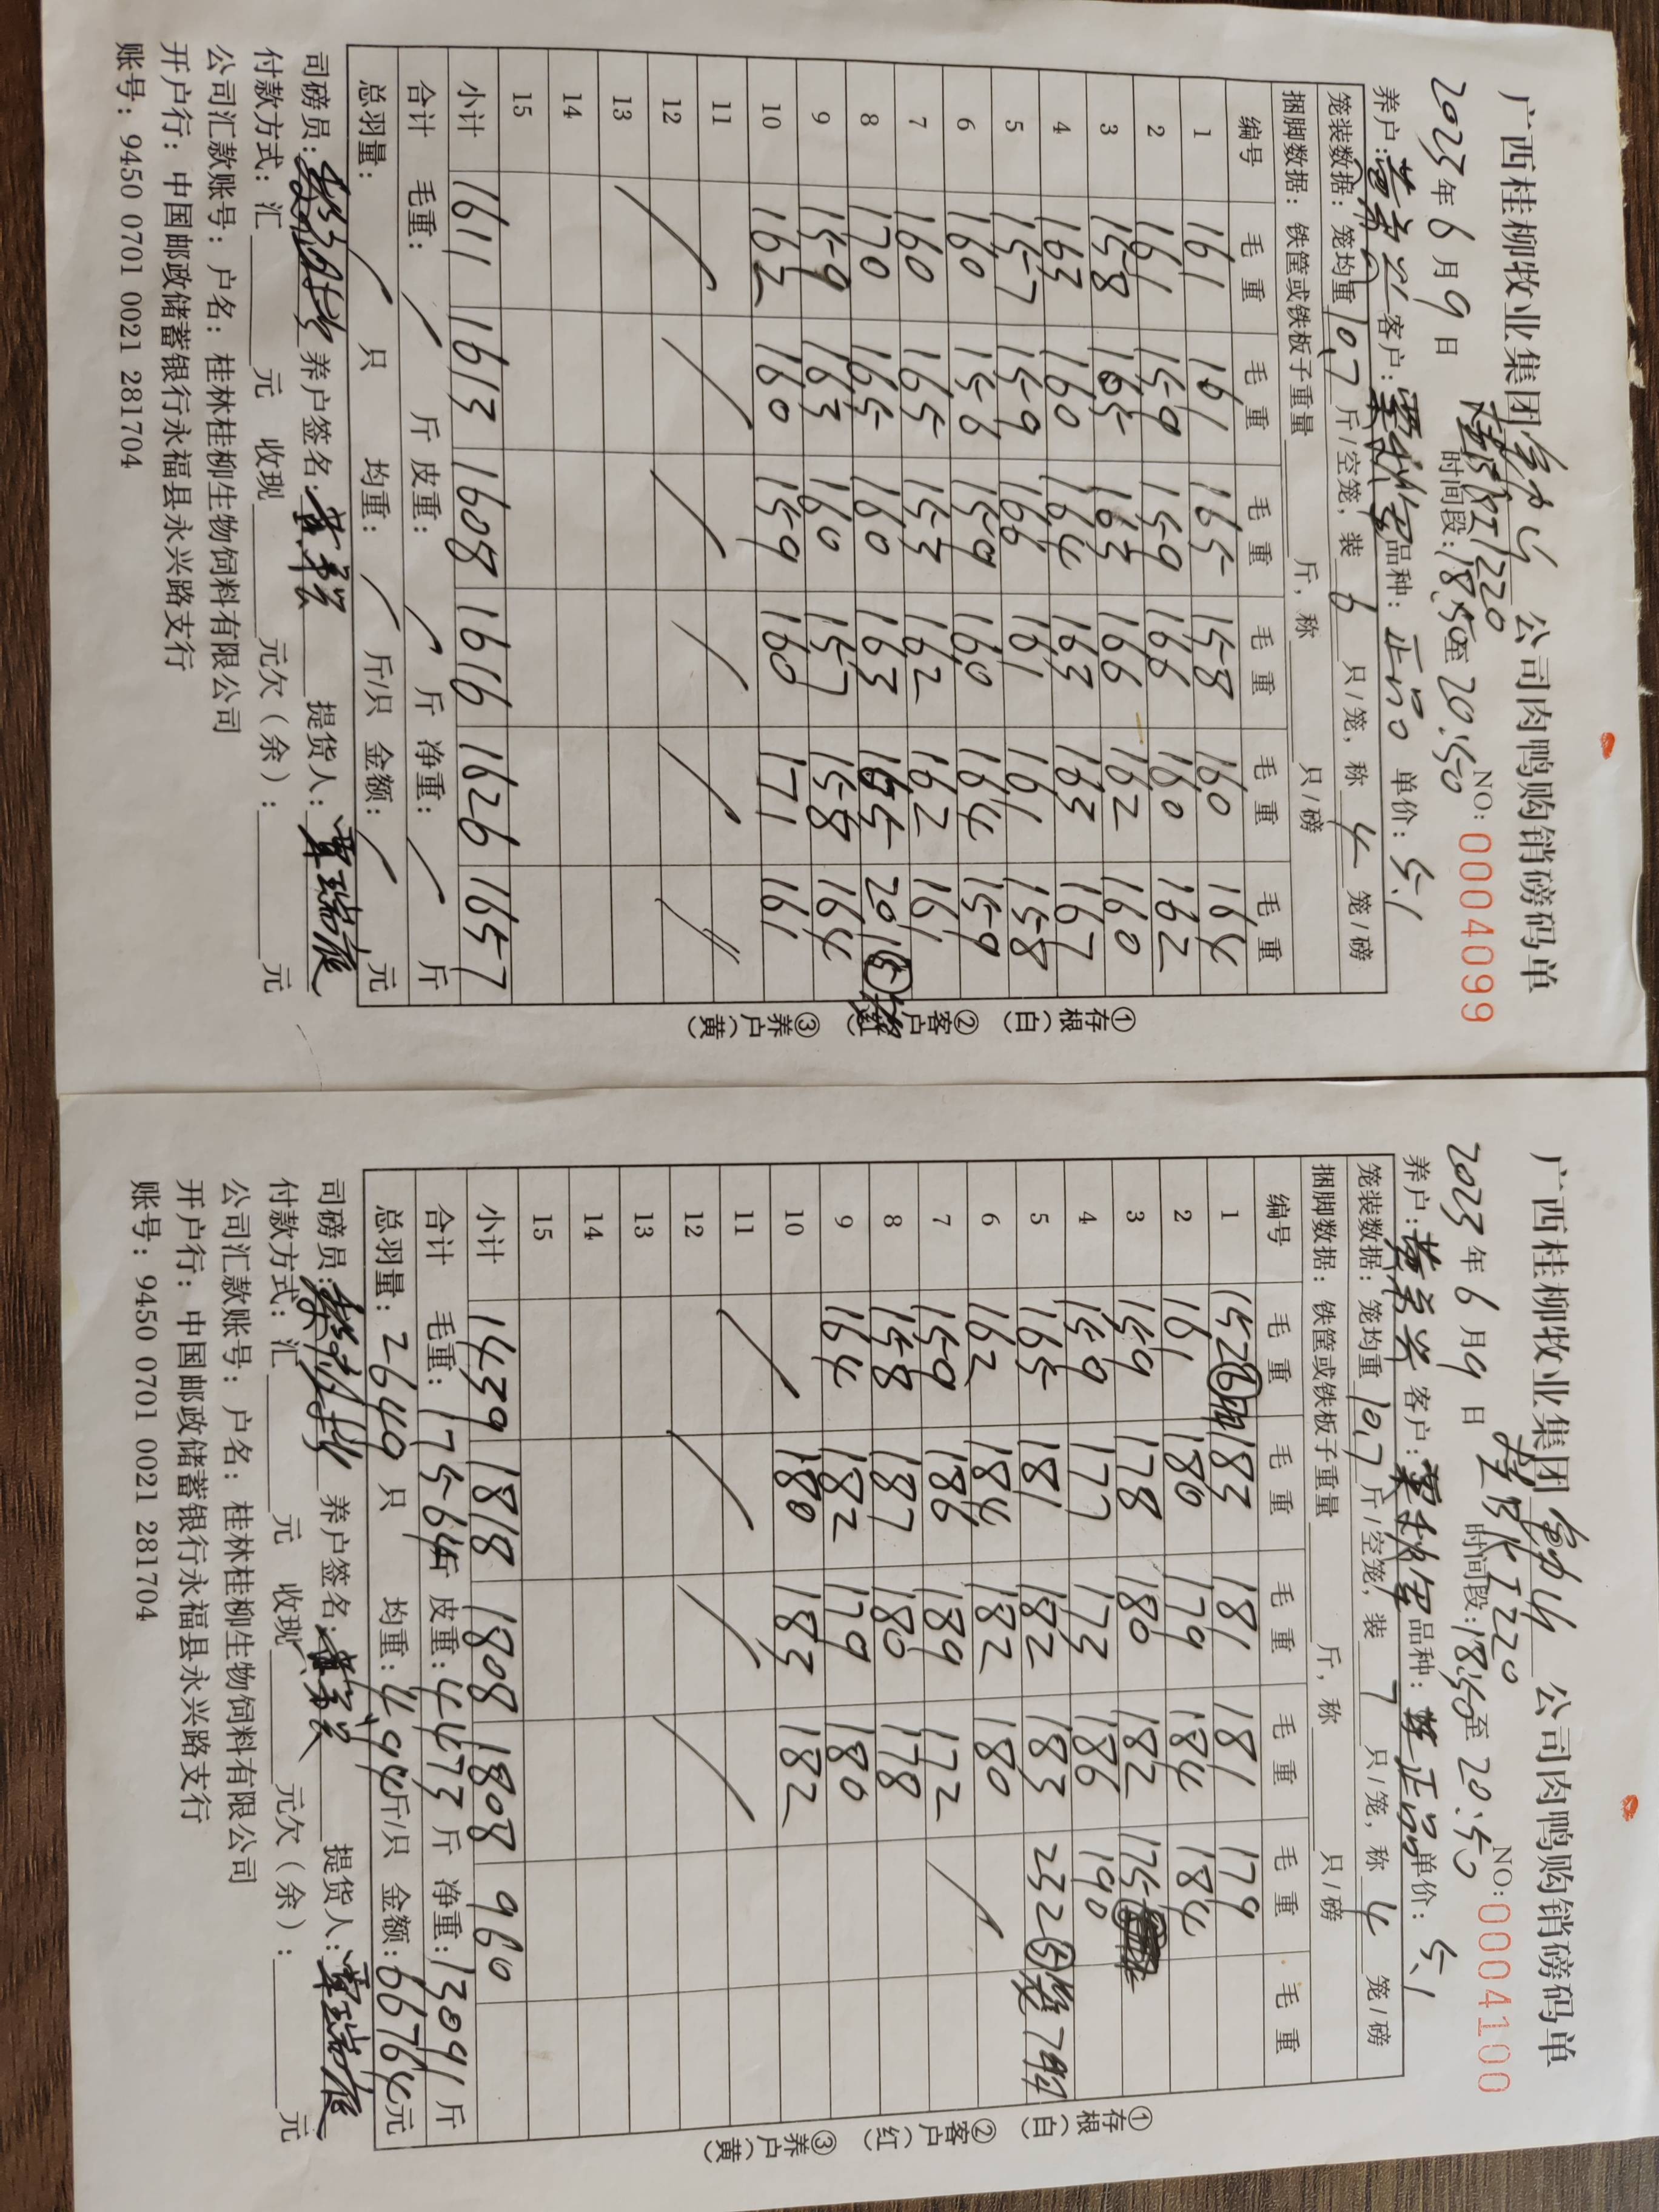 广西桂柳牧业集团 公司肉鸭购销磅码单
2023年6月9日 时间段:18:50至20:50 NO:0004099
养户: 客户: 品种:正品 单价:5.1
笼装数据:笼均重10.7斤/空笼,装6只/笼,称4笼/磅
捆脚数据:铁筐或铁板子重量 斤,称 只/磅
编号 毛重 毛重 毛重 毛重 毛重 毛重
1 161 161 165 158 160 164
2 161 159 159 166 160 162
3 158 165 163 166 162 160
4 163 160 164 163 163 167
5 157 159 166 161 161 158
6 160 158 159 160 164 159
7 160 165 153 162 162 161
8 170 165 160 163 165 201⑤
9 159 163 160 157 158 164
10 162 160 159 160 171 161
11
12
13
14
15
小计 1611 1613 1608 1616 1626 1657
合计 毛重: 斤 皮重: 斤 净重: 斤
总羽量: 只 均重: 斤/只 金额: 元
司磅员: 养户签名: 提货人:覃瑞庭
付款方式:汇 元 收现 元欠(余): 元
公司汇款账号:户名:桂林桂柳生物饲料有限公司
开户行:中国邮政储蓄银行永福县永兴路支行
账号:9450 0701 0021 281704
①存根(白) ②客户(红) ③养户(黄)
广西桂柳牧业集团 公司肉鸭购销磅码单
2023年6月9日 时间段:18:50至20:50 NO:0004100
养户: 客户: 品种:正品 单价:5.1
笼装数据:笼均重10.7斤/空笼,装7只/笼,称4笼/磅
捆脚数据:铁筐或铁板子重量 斤,称 只/磅
编号 毛重 毛重 毛重 毛重 毛重 毛重
1 152 183 181 181 179
2 161 180 179 184 184
3 159 178 180 182 175
4 159 177 173 186 190
5 165 181 182 183 232⑤笼79只
6 162 184 182 180
7 159 186 189 172
8 158 187 180 178
9 164 182 179 180
10 180 183 182
11
12
13
14
15
小计 1439 1818 1808 1808 960
合计 毛重:17564斤 皮重:4473斤 净重:13091斤
总羽量:2649只 均重:4.94斤/只 金额:66764元
司磅员: 养户签名: 提货人:覃瑞庭
付款方式:汇 元 收现 元欠(余): 元
公司汇款账号:户名:桂林桂柳生物饲料有限公司
开户行:中国邮政储蓄银行永福县永兴路支行
账号:9450 0701 0021 281704
①存根(白) ②客户(红) ③养户(黄)